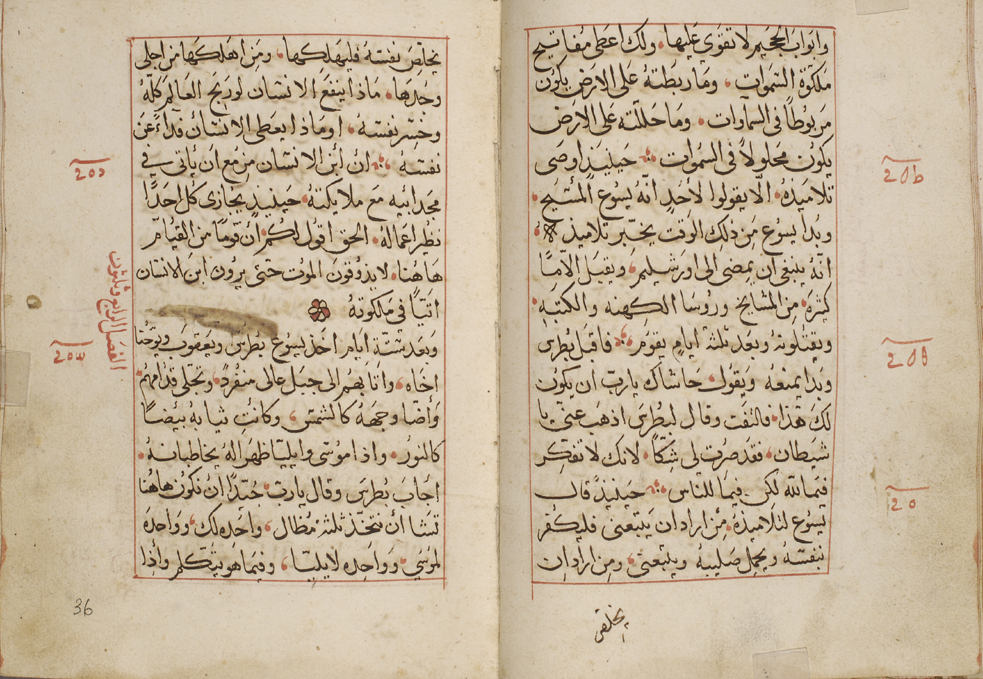 وابواب الجحيم لا تقوى عليها ولك اعطى مفاتيح
ملكوة السموات وما ربطته على الارض يكون
مربوطاً في السماوات وما حللته على الارض
يكون محلولاً في السموات حينيذ اوصى
تلاميذه الا يقولوا لاحد انه يسوع المسيح
وبدا يسوع من ذلك الوقت يخبر تلاميذه
انه ينبغي ان يمضي الى اورشليم ويقبل الآما
كثيره من المشايخ وروسا الكهنه والكتبه
ويقتلونه وبعد ثلثة ايام يقوم فاقبل بطرس
وبدا يمنعه ويقول حاشاك يارب ان يكون
لك هذا فالتفت وقال لبطرس اذهب عني يا
شيطان فقد صرت لي شكاً لانك لا تفكر
فيما لله لكن فيما للناس حينيذ قال
يسوع لتلاميذه من اراد ان يتبعني فليكفر
بنفسه ويحمل صليبه ويتبعني ومن اراد ان
يخلص
يخلص نفسه فليهلكها ومن اهلكها من اجلي
وجدها ماذا ينفع الانسان لو ربح العالم كله
وخسر نفسه او ماذا يعطى الانسان فداء عن
نفسه ان ابن الانسان مزمع ان ياتي في
مجد ابيه مع ملايكته حينيذ يجازى كل احدا
نظير اعماله الحق اقول لكم ان قوما من القيام
هاهنا لا يذوقون الموت حتى يرون ابن الانسان
اتيا في ملكوته
الفصل الرابع وثلثون
وبعد ستة ايام اخذ يسوع بطرس ويعقوب ويوحنا
اخاه واتا بهم الى جبل عالى منفرد وتجلى قدامهم
وأضا وجهه كالشمس وكانت ثيابه بيضا
كالنور واذا موسى وايليا ظهرا له يخاطبانه
اجاب بطرس وقال يارب جيدا ان نكون هاهنا
تشا أن نتخذ ثلثة مظال واحده لك وواحده
لموسى وواحده لايليا وفيما هو يتكلم واذا
36